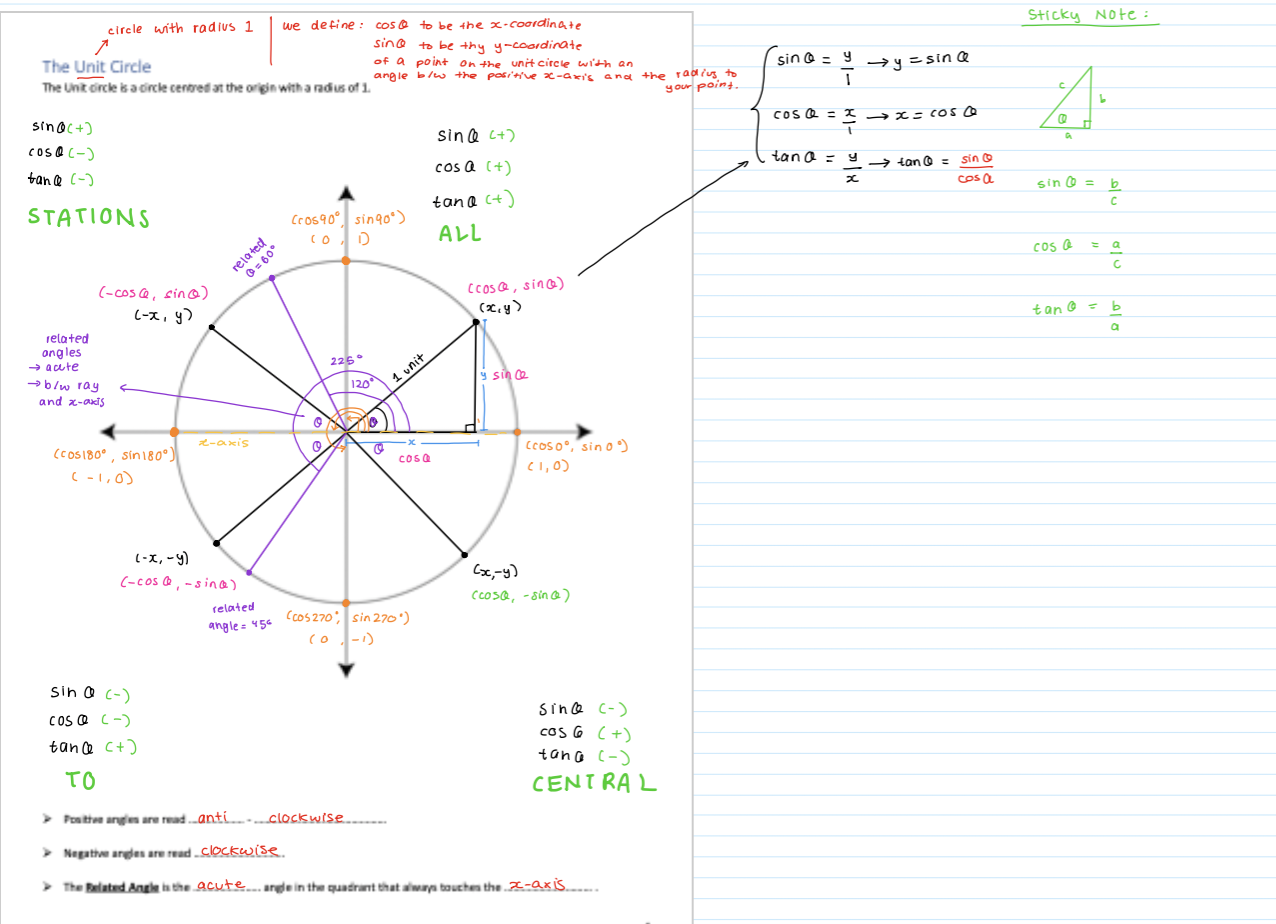 circle with radius 1
we define: cosθ to be the x-coordinate
sinθ to be thy y-coordinate
of a point on the unit circle with an
angle b/w the positive x-axis and the radius to
your point.
The Unit Circle
The Unit circle is a circle centred at the origin with a radius of 1.
sinθ (+)
cosθ (-)
tanθ (-)
STATIONS
sinθ (+)
cosθ (+)
tanθ (+)
ALL
(cos90°, sin90°)
(0, 1)
related
θ=60°
(-cosθ, sinθ)
(-x, y)
(cosθ, sinθ)
(x,y)
related
angles
→ acute
→ b/w ray
and x-axis
225°
120°
1 unit
y sinθ
θ
θ
θ
θ
x-axis
x
cosθ
(cos180°, sin180°)
(-1,0)
(cos0°, sin0°)
(1,0)
(-x,-y)
(-cosθ, -sinθ)
(x,-y)
(cosθ, -sinθ)
related
angle = 45°
(cos270°, sin270°)
(0, -1)
sinθ (-)
cosθ (-)
tanθ (+)
TO
sinθ (-)
cosθ (+)
tanθ (-)
CENTRAL
➤ Positive angles are read anti - clockwise
➤ Negative angles are read clockwise.
➤ The Related Angle is the acute angle in the quadrant that always touches the x-axis.
sinθ = y/1 → y = sinθ
cosθ = x/1 → x = cosθ
tanθ = y/x → tanθ = sinθ/cosθ
Sticky Note:
c
b
θ
a
sinθ = b/c
cosθ = a/c
tanθ = b/a